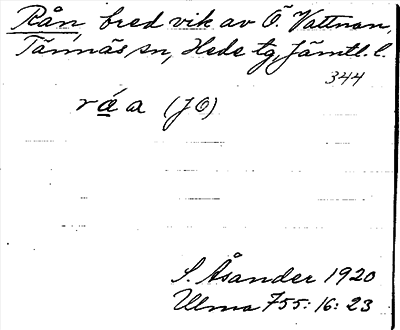 Rån bred vik av Ö. Vattnan,
Tännäs sn, Hede tg, Jämtl. l.
344
råa (JÖ)
S. Åsander 1920
Ulma 755: 16: 23